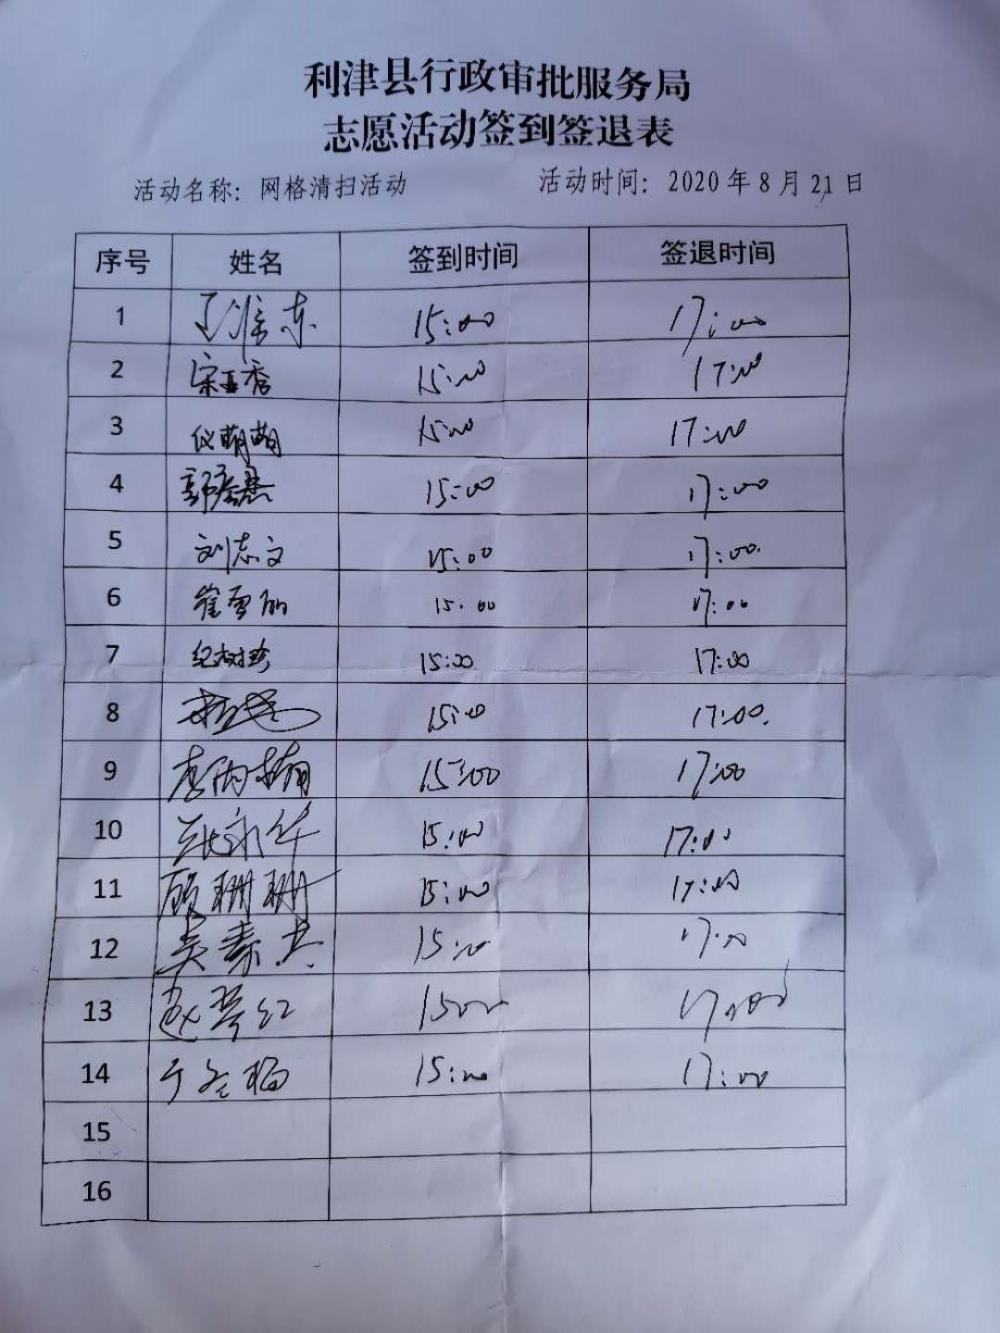 利津县行政审批服务局
志愿活动签到签退表
活动名称：网格清扫活动 活动时间：2020年8月21日
序号 姓名 签到时间 签退时间
1 15:00 17:00
2 宋亚秀 15:00 17:00
3 仪萌萌 15:00 17:00
4 15:00 17:00
5 刘志文 15:00 17:00.
6 崔雪丽 15:00 17:00
7 纪树珍 15:00 17:00
8 15:00 17:00.
9 15:00 17:00
10 15:00 17:00
11 顾珊珊 15:00 17:00
12 吴秦兰 15:00 17:00
13 赵琴红 1500 17:00
14 于冬梅 15:00 17:00
15
16